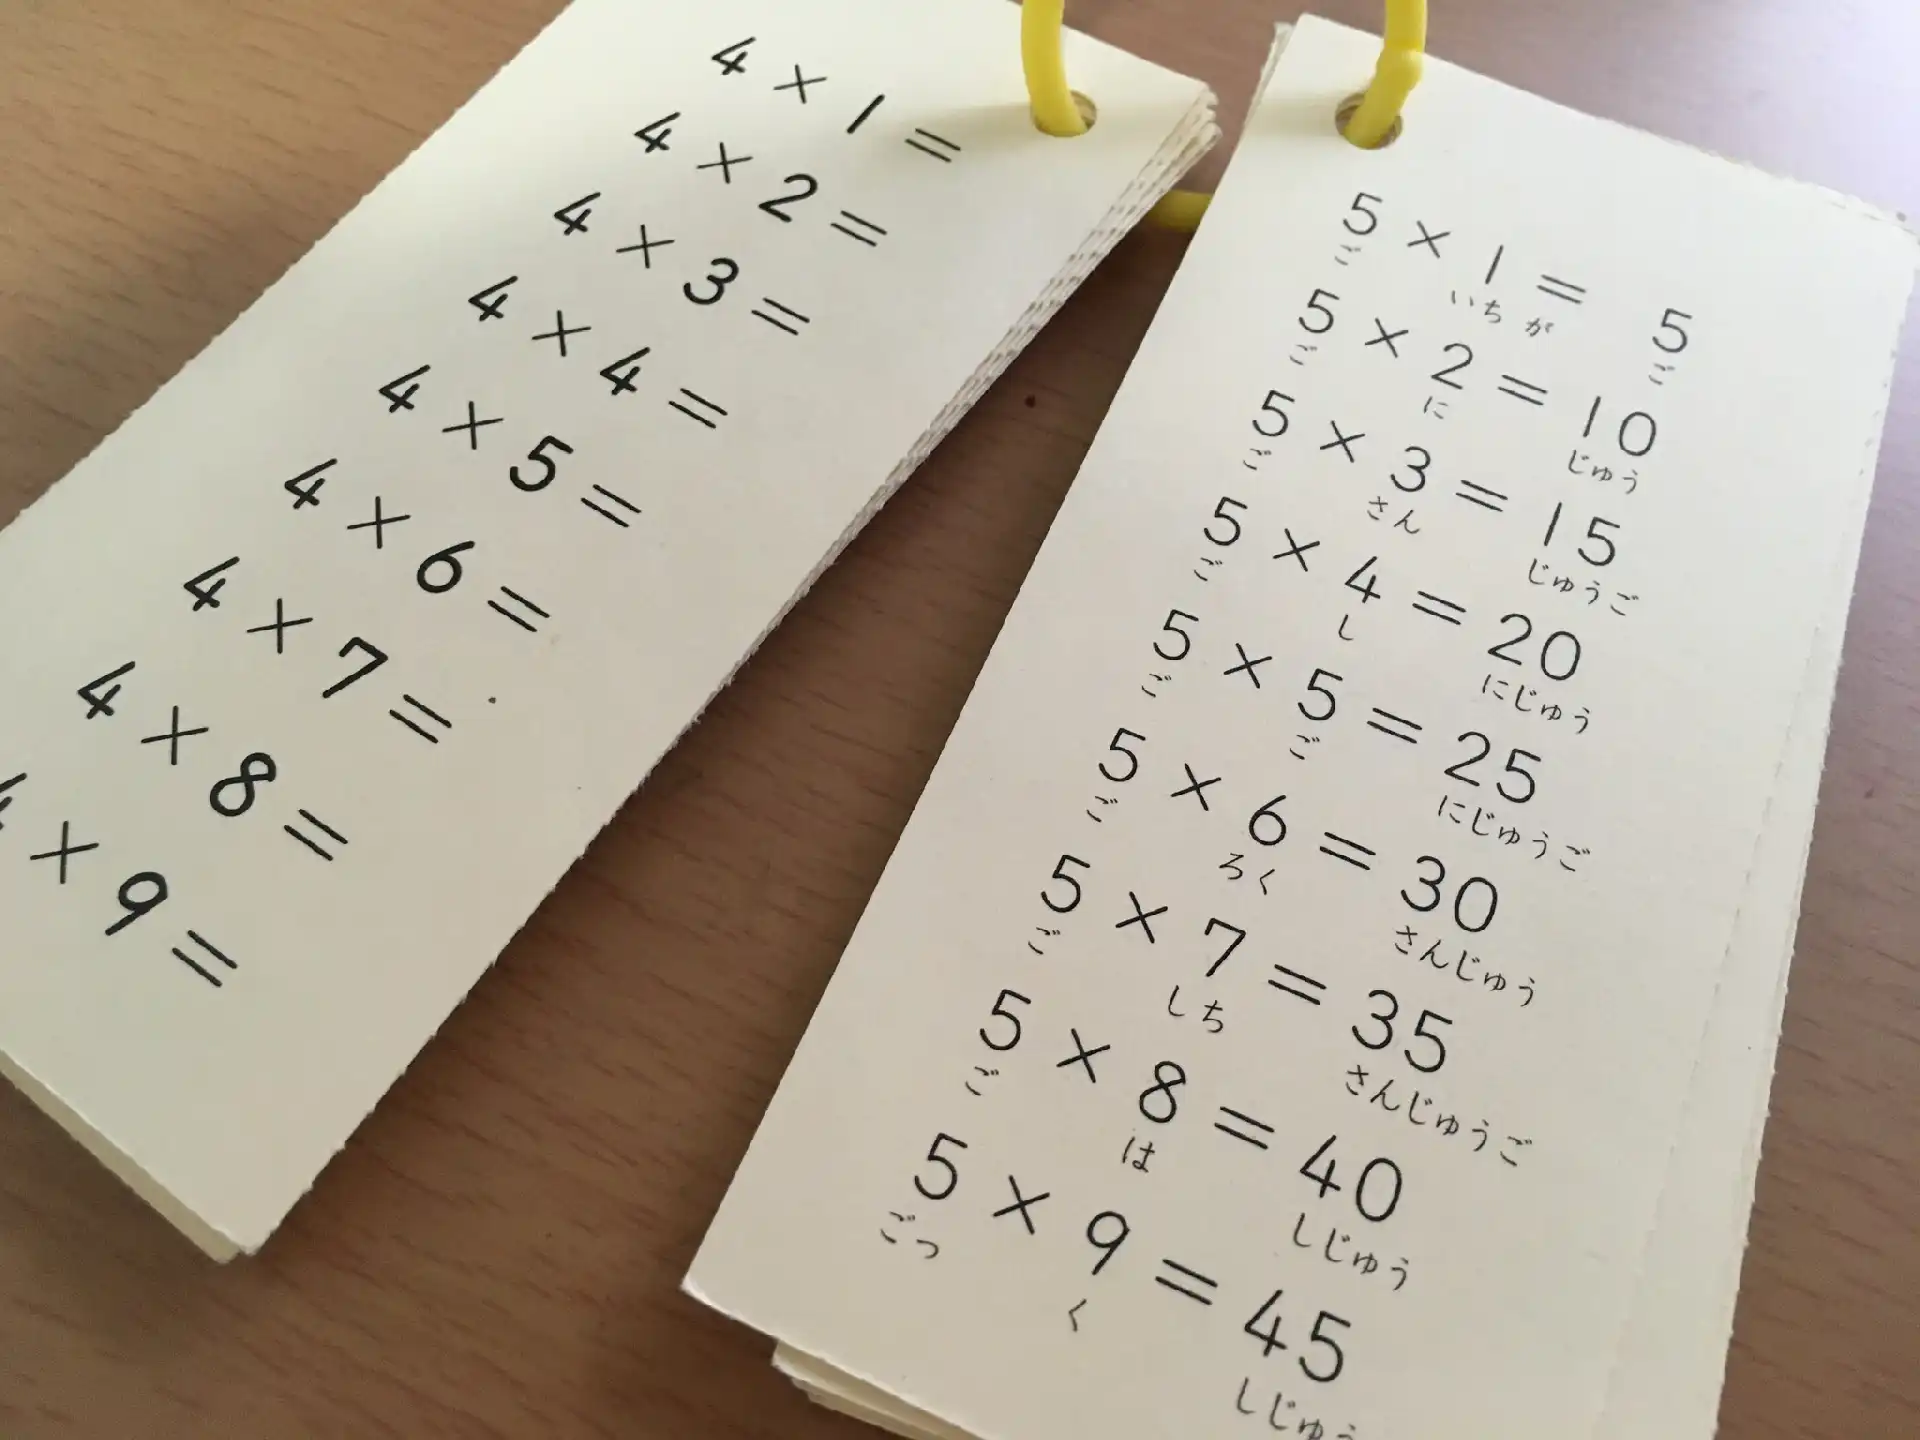 4 × 1 =
4 × 2 =
4 × 3 =
4 × 4 =
4 × 5 =
4 × 6 =
4 × 7 =
4 × 8 =
4 × 9 =
5 × 1 = 5
ご いち が ご
5 × 2 = 10
ご に じゅう
5 × 3 = 15
ご さん じゅうご
5 × 4 = 20
ご し にじゅう
5 × 5 = 25
ご ご にじゅうご
5 × 6 = 30
ご ろく さんじゅう
5 × 7 = 35
ご しち さんじゅうご
5 × 8 = 40
ご は しじゅう
5 × 9 = 45
ごっ く しじゅう